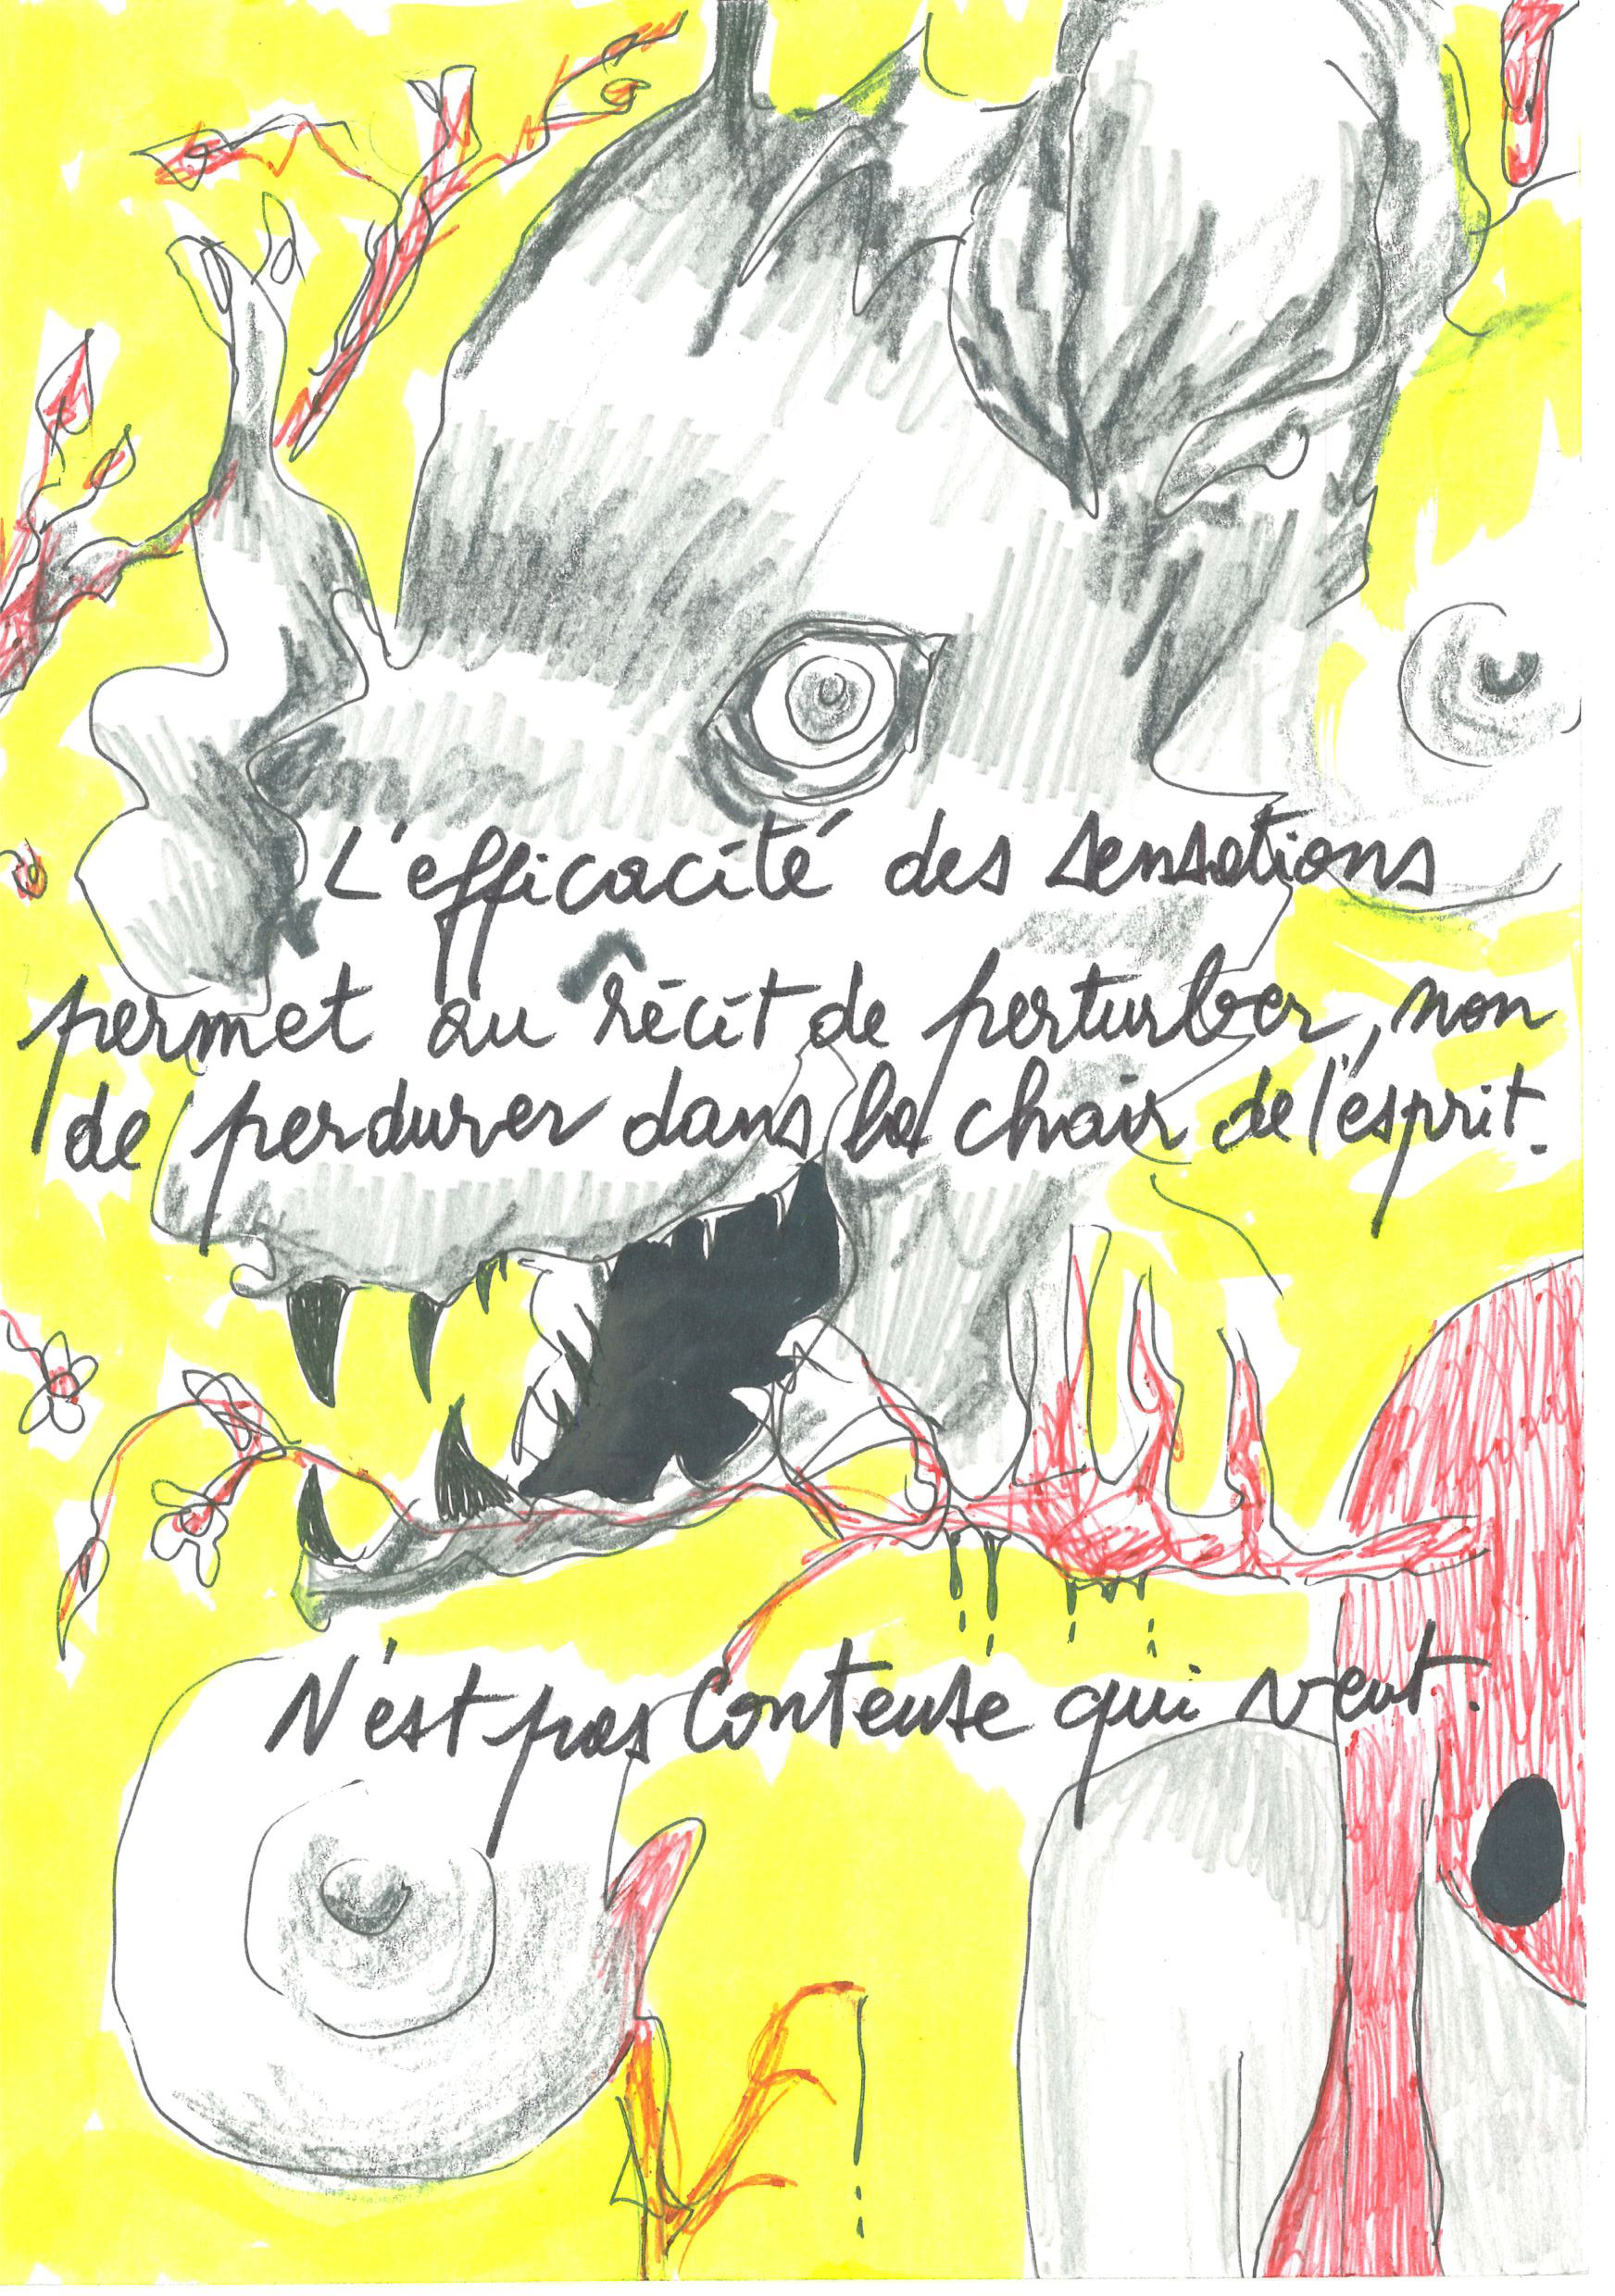 L'efficacité des sensations
permet au récit de perturber, non
de perdurer dans la chair de l'esprit.
N'est pas Conteuse qui veut.